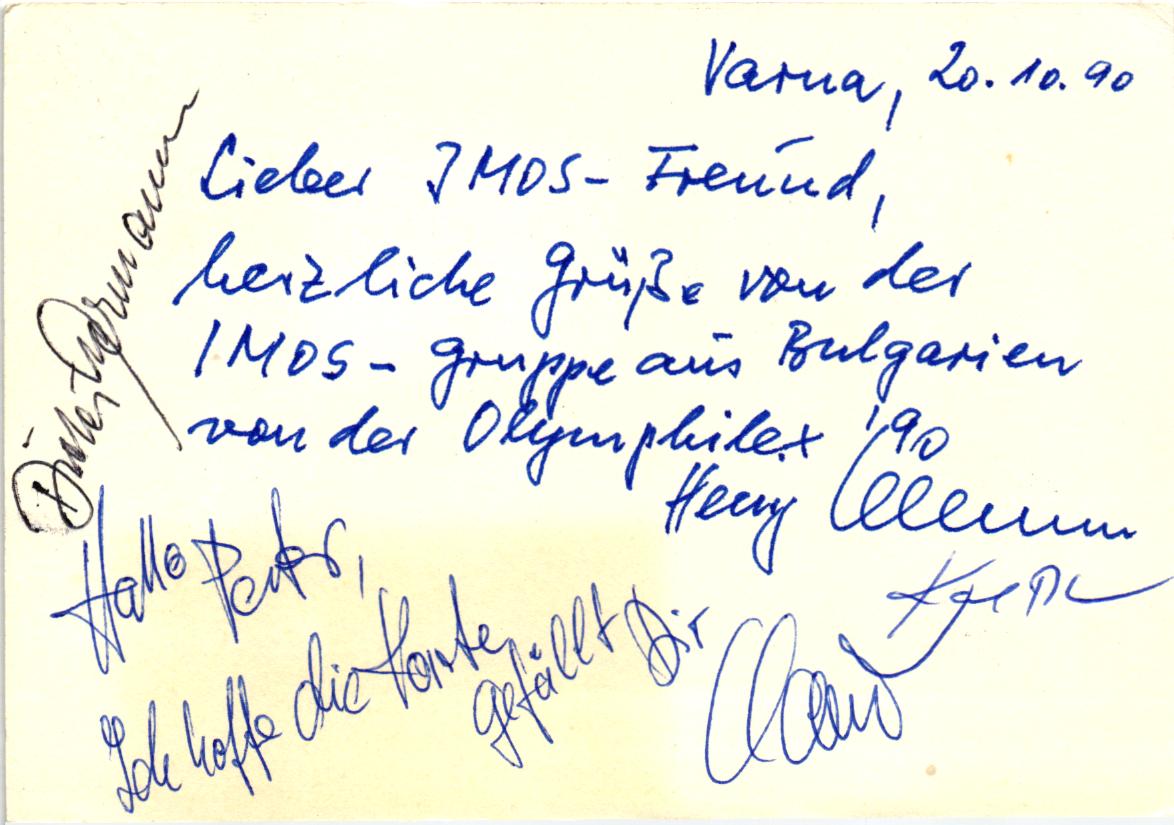 Varna, 20.10.90
Lieber IMOS-Freund,
herzliche Grüße von der
IMOS-Gruppe aus Bulgarien
von der Olymphilex '90
Henry
Hallo Peter,
Ich hoffe die Karte
gefällt Dir